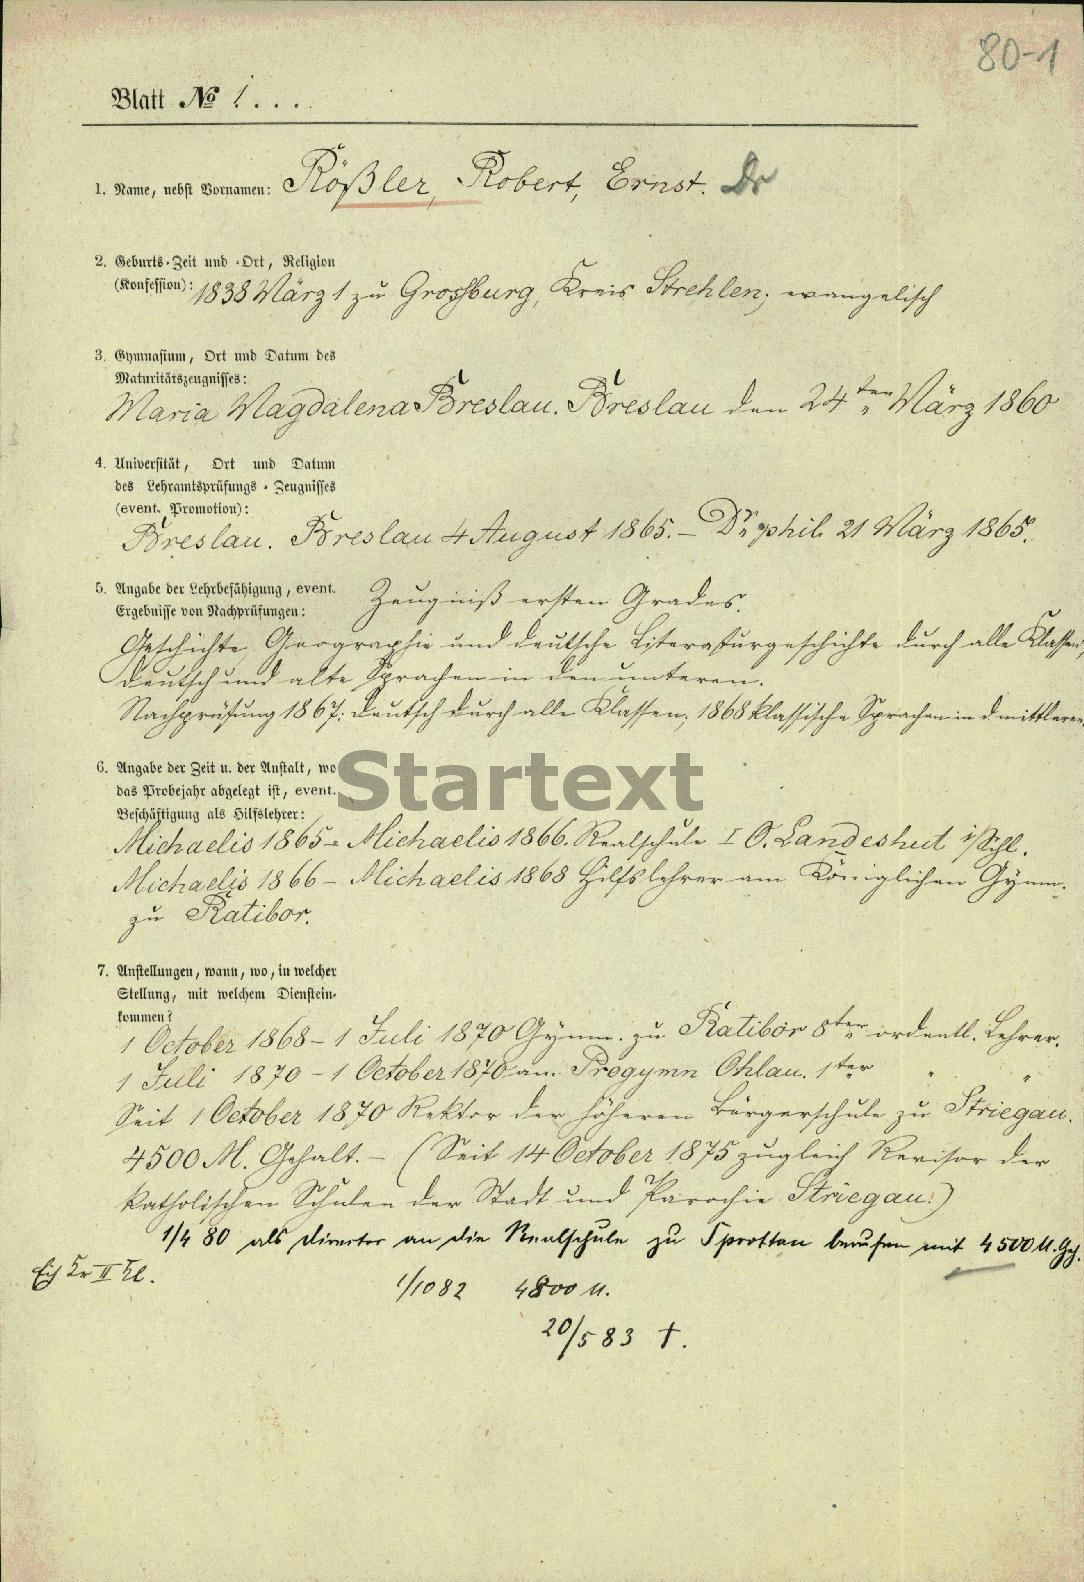 80-1
Blatt № 1...
1. Name, nebst Vornamen: Rößler, Robert, Ernst. Dr
2. Geburts-Zeit und -Ort, Religion
(Konfession): 1838 März 1 zu Grossburg, Kreis Strehlen; evangelisch
3. Gymnasium, Ort und Datum des
Maturitätszeugnisses:
Maria Magdalena Breslau. Breslau den 24ten März 1860
4. Universität, Ort und Datum
des Lehramtsprüfungs-Zeugnisses
(event. Promotion):
Breslau. Breslau 4 August 1865. – Dr. phil. 21 März 1865.
5. Angabe der Lehrbefähigung, event. Zeugniß ersten Grades.
Ergebnisse von Nachprüfungen:
Geschichte, Geographie und deutsche Literaturgeschichte durch alle Klassen,
deutsch und alte Sprachen in den unteren.
Nachprüfung 1867: deutsch durch alle Klassen, 1868 klassische Sprachen in d. mittleren.
6. Angabe der Zeit u. der Anstalt, wo
das Probejahr abgelegt ist, event.
Startext
Beschäftigung als Hilfslehrer:
Michaelis 1865 – Michaelis 1866. Realschule I O. Landeshut i/Schl.
Michaelis 1866 – Michaelis 1868 Hilfslehrer am Königlichen Gymn.
zu Ratibor.
7. Anstellungen, wann, wo, in welcher
Stellung, mit welchem Dienstein-
kommen?
1 October 1868 – 1 Juli 1870 Gymn. zu Ratibor 8ter ordentl. Lehrer.
1 Juli 1870 – 1 October 1870 am Progymn Ohlau. 1ter " "
Seit 1 October 1870 Rektor der höheren Bürgerschule zu Striegau.
4500 M. Gehalt. – (Seit 14 October 1875 zugleich Revisor der
katholischen Schulen der Stadt und Parochie Striegau.)
1/4 80 als Director an die Realschule zu Sprottau berufen mit 4500 M. Geh.
Kr II Kl.
1/10 82 4800 M.
20/5 83 †.